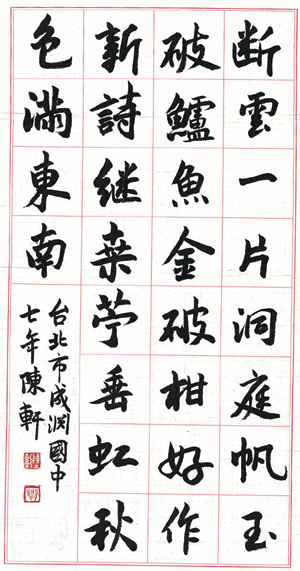 断雲一片洞庭帆玉
破鱸魚金破柑好作
新詩继桒苧垂虹秋
色滿東南
台北市成渊國中
七年陳軒